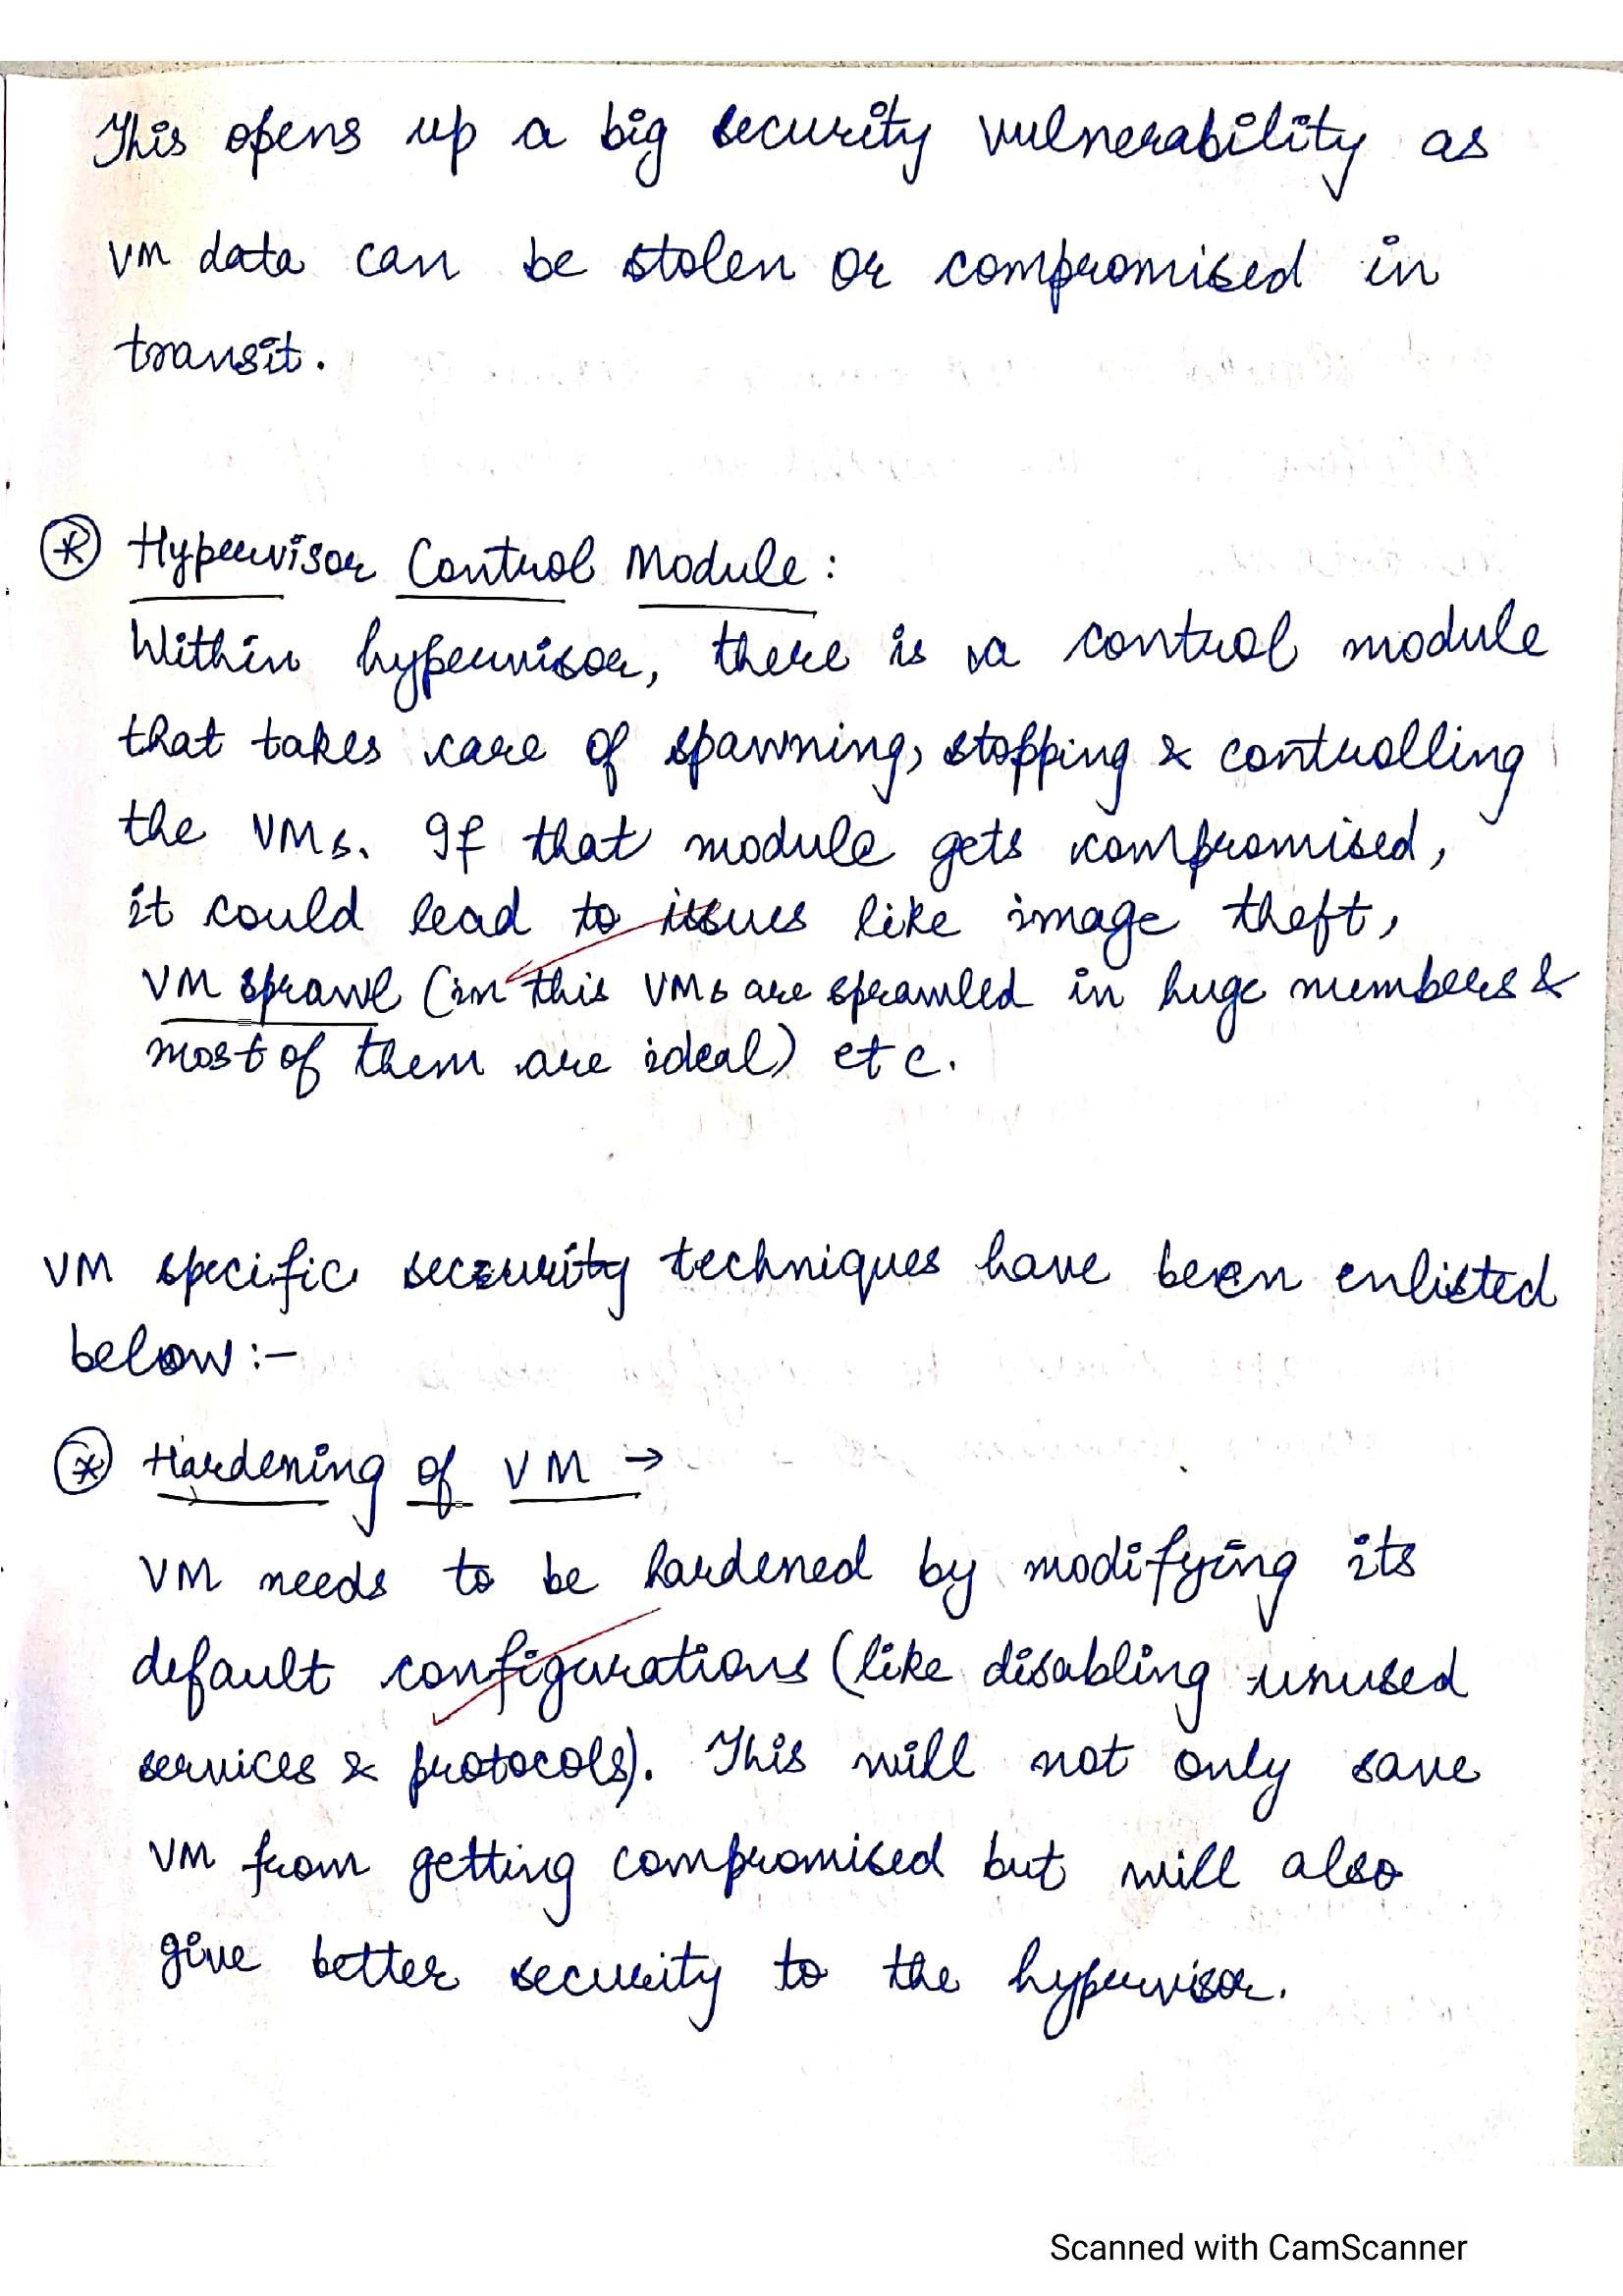 This opens up a big security vulnerability as
VM data can be stolen or compromised in
transit.
Hypervisor Control Module :
Within hypervisor, there is a control module
that takes care of spawning, stopping & controlling
the VMs. If that module gets compromised,
it could lead to issues like image theft,
VM sprawl (in this VMs are sprawled in huge numbers &
most of them are ideal) etc.
VM specific security techniques have been enlisted
below :-
Hardening of VM →
VM needs to be hardened by modifying its
default configurations (like disabling unused
services & protocols). This will not only save
VM from getting compromised but will also
give better security to the hypervisor.
Scanned with CamScanner